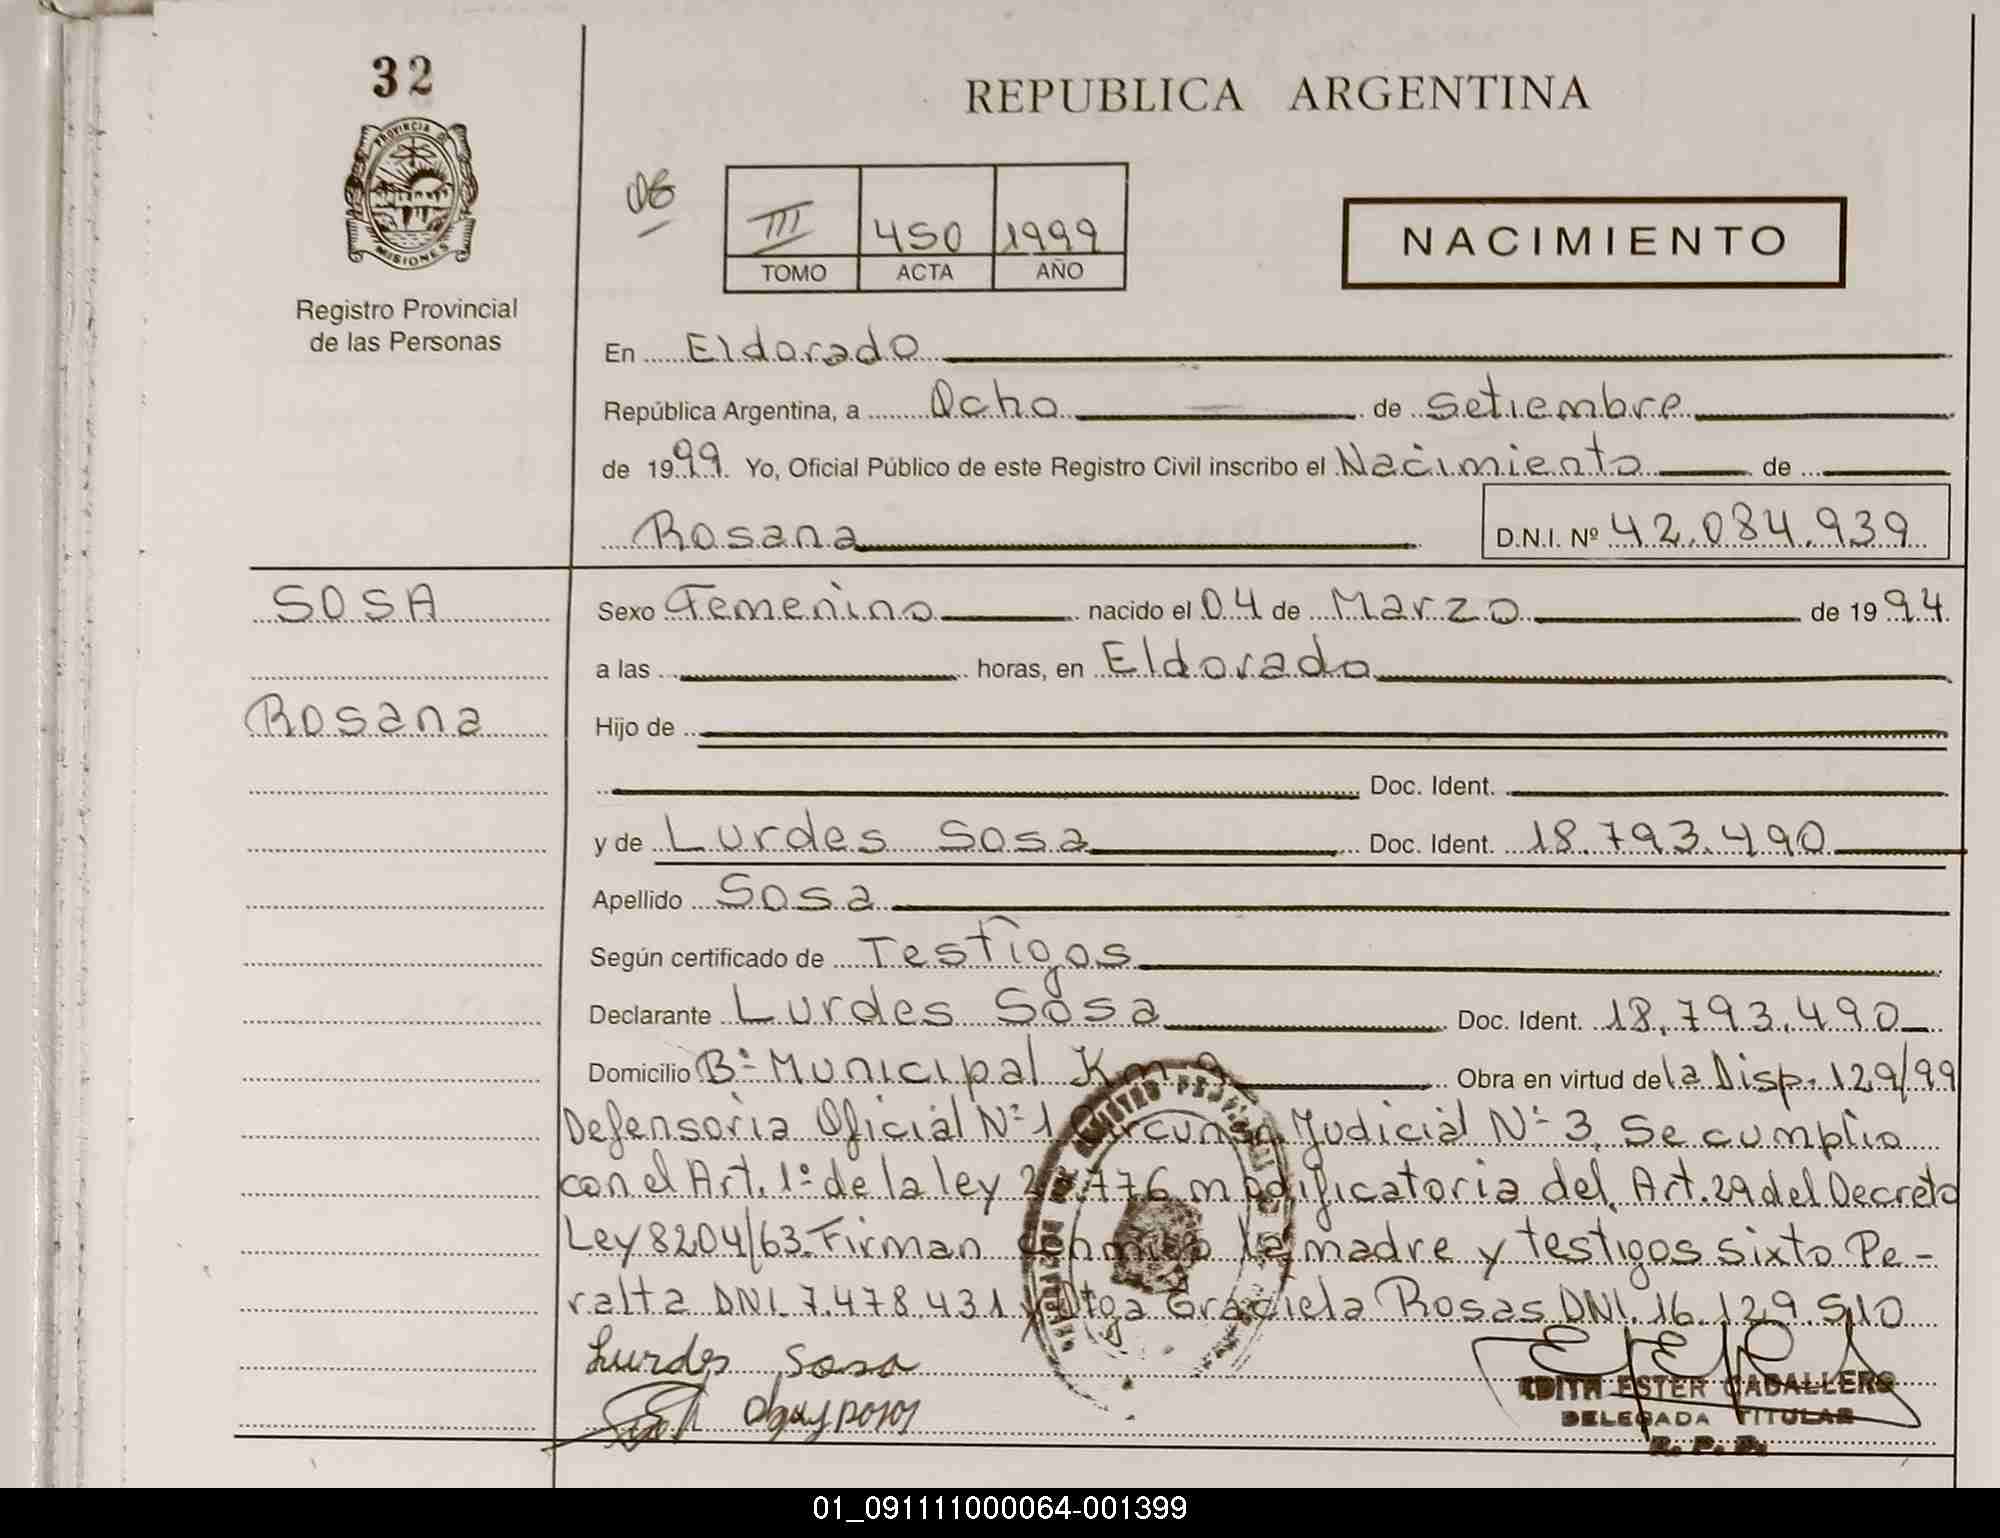 32
PROVINCIA D
MISIONES
Registro Provincial
de las Personas
REPUBLICA ARGENTINA
III 450 1999
TOMO ACTA AÑO
NACIMIENTO
En Eldorado
República Argentina, a Ocho de Setiembre
de 1999. Yo, Oficial Público de este Registro Civil inscribo el Nacimiento de
Rosana D.N.I. Nº 42.084.939
SOSA
Rosana
Sexo Femenino nacido el 04 de Marzo de 1994.
a las horas, en Eldorado
Hijo de
Doc. Ident.
y de Lurdes Sosa Doc. Ident. 18.793.490
Apellido Sosa
Según certificado de Testigos
Declarante Lurdes Sosa Doc. Ident. 18.793.490
Domicilio Bº Municipal Km 9 Obra en virtud de la Disp. 129/99
Defensoria Oficial Nº 1 Circunsc. Judicial Nº 3. Se cumplio
con el Art. 1º de la ley modificatoria del Art. 29 del Decreto
Ley 8204/63. Firman conmigo la madre y testigos Sixto Pe-
ralta DNI. 7.478.431 y Olga Graciela Rosas DNI. 16.129.510
Lurdes Sosa
EDITH ESTER CABALLERO
DELEGADA TITULAR
R. P. P.
01_091111000064-001399